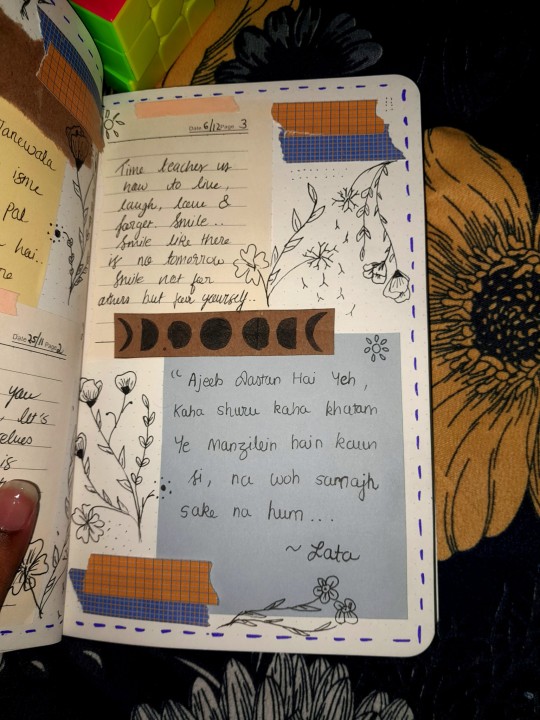 Janewala
isme
Pal
hai..
Date 25/11 Page 2
you
let's
is
Date 6/12 Page 3
Time teaches us
how to live,
laugh, love &
forget. Smile..
Smile like there
is no tomorrow
Smile not for
others but for yourself..
“ Ajeeb Dastan Hai Yeh,
Kaha shuru kaha khatam
Ye Manzilein hain kaun
si, na woh samajh
sake na hum...
~ Lata